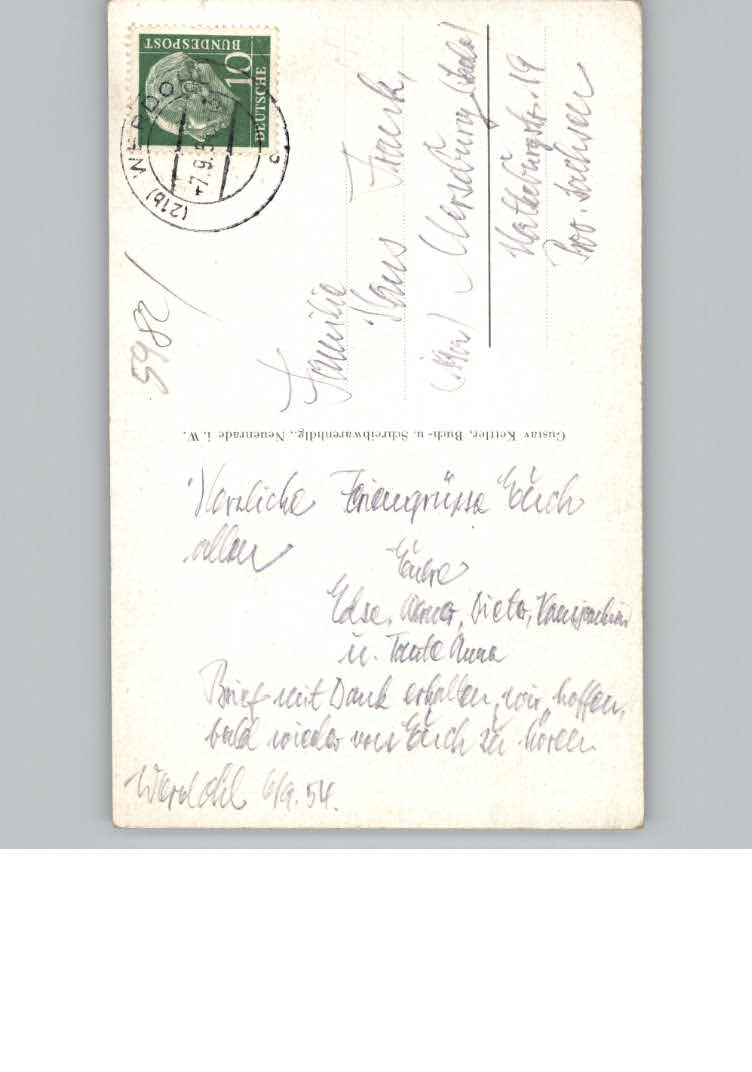 DEUTSCHE
BUNDESPOST
10
(21b) WERDO
7.9.5
5982/
Familie
Hans Frank,
Merseburg (Saale)
Hatheburgstr. 19
Prov. Sachsen
Gustav Kettler, Buch- u. Schreibwarenhdlg., Neuenrade i. W.
Herzliche Feriengrüsse Euch
allen
Eure
Edse, Werner, Dieter, Hansjoachim
u. Tante Anna
Brief mit Dank erhalten, wir hoffen,
bald wieder von Euch zu hören
Werdohl 6/9.54.